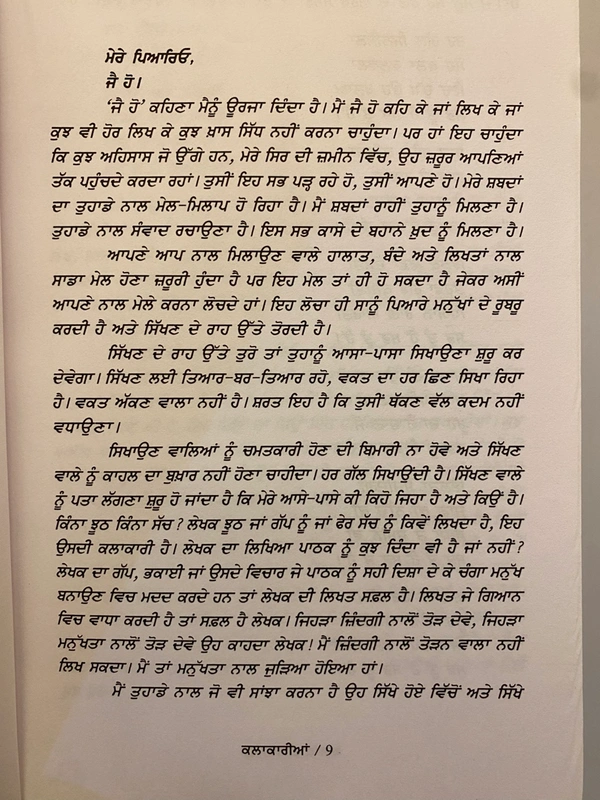 ਮੇਰੇ ਪਿਆਰਿਓ,
ਜੈ ਹੋ।
‘ਜੈ ਹੋ’ ਕਹਿਣਾ ਮੈਨੂੰ ਊਰਜਾ ਦਿੰਦਾ ਹੈ। ਮੈਂ ਜੈ ਹੋ ਕਹਿ ਕੇ ਜਾਂ ਲਿਖ ਕੇ ਜਾਂ
ਕੁਝ ਵੀ ਹੋਰ ਲਿਖ ਕੇ ਕੁਝ ਖ਼ਾਸ ਸਿੱਧ ਨਹੀਂ ਕਰਨਾ ਚਾਹੁੰਦਾ। ਪਰ ਹਾਂ ਇਹ ਚਾਹੁੰਦਾ
ਕਿ ਕੁਝ ਅਹਿਸਾਸ ਜੋ ਉੱਗੇ ਹਨ, ਮੇਰੇ ਸਿਰ ਦੀ ਜ਼ਮੀਨ ਵਿੱਚ, ਉਹ ਜ਼ਰੂਰ ਆਪਣਿਆਂ
ਤੱਕ ਪਹੁੰਚਦੇ ਕਰਦਾ ਰਹਾਂ। ਤੁਸੀਂ ਇਹ ਸਭ ਪੜ੍ਹ ਰਹੇ ਹੋ, ਤੁਸੀਂ ਆਪਣੇ ਹੋ। ਮੇਰੇ ਸ਼ਬਦਾਂ
ਦਾ ਤੁਹਾਡੇ ਨਾਲ ਮੇਲ-ਮਿਲਾਪ ਹੋ ਰਿਹਾ ਹੈ। ਮੈਂ ਸ਼ਬਦਾਂ ਰਾਹੀਂ ਤੁਹਾਨੂੰ ਮਿਲਣਾ ਹੈ।
ਤੁਹਾਡੇ ਨਾਲ ਸੰਵਾਦ ਰਚਾਉਣਾ ਹੈ। ਇਸ ਸਭ ਕਾਸੇ ਦੇ ਬਹਾਨੇ ਖ਼ੁਦ ਨੂੰ ਮਿਲਣਾ ਹੈ।
ਆਪਣੇ ਆਪ ਨਾਲ ਮਿਲਾਉਣ ਵਾਲੇ ਹਾਲਾਤ, ਬੰਦੇ ਅਤੇ ਲਿਖਤਾਂ ਨਾਲ
ਸਾਡਾ ਮੇਲ ਹੋਣਾ ਜ਼ਰੂਰੀ ਹੁੰਦਾ ਹੈ ਪਰ ਇਹ ਮੇਲ ਤਾਂ ਹੀ ਹੋ ਸਕਦਾ ਹੈ ਜੇਕਰ ਅਸੀਂ
ਆਪਣੇ ਨਾਲ ਮੇਲੇ ਕਰਨਾ ਲੋਚਦੇ ਹਾਂ। ਇਹ ਲੋਚਾ ਹੀ ਸਾਨੂੰ ਪਿਆਰੇ ਮਨੁੱਖਾਂ ਦੇ ਰੂਬਰੂ
ਕਰਦੀ ਹੈ ਅਤੇ ਸਿੱਖਣ ਦੇ ਰਾਹ ਉੱਤੇ ਤੋਰਦੀ ਹੈ।
ਸਿੱਖਣ ਦੇ ਰਾਹ ਉੱਤੇ ਤੁਰੋ ਤਾਂ ਤੁਹਾਨੂੰ ਆਸਾ-ਪਾਸਾ ਸਿਖਾਉਣਾ ਸ਼ੁਰੂ ਕਰ
ਦੇਵੇਗਾ। ਸਿੱਖਣ ਲਈ ਤਿਆਰ-ਬਰ-ਤਿਆਰ ਰਹੋ, ਵਕਤ ਦਾ ਹਰ ਛਿਣ ਸਿਖਾ ਰਿਹਾ
ਹੈ। ਵਕਤ ਅੱਕਣ ਵਾਲਾ ਨਹੀਂ ਹੈ। ਸ਼ਰਤ ਇਹ ਹੈ ਕਿ ਤੁਸੀਂ ਥੱਕਣ ਵੱਲ ਕਦਮ ਨਹੀਂ
ਵਧਾਉਣਾ।
ਸਿਖਾਉਣ ਵਾਲਿਆਂ ਨੂੰ ਚਮਤਕਾਰੀ ਹੋਣ ਦੀ ਬਿਮਾਰੀ ਨਾ ਹੋਵੇ ਅਤੇ ਸਿੱਖਣ
ਵਾਲੇ ਨੂੰ ਕਾਹਲ ਦਾ ਬੁਖ਼ਾਰ ਨਹੀਂ ਹੋਣਾ ਚਾਹੀਦਾ। ਹਰ ਗੱਲ ਸਿਖਾਉਂਦੀ ਹੈ। ਸਿੱਖਣ ਵਾਲੇ
ਨੂੰ ਪਤਾ ਲੱਗਣਾ ਸ਼ੁਰੂ ਹੋ ਜਾਂਦਾ ਹੈ ਕਿ ਮੇਰੇ ਆਸੇ-ਪਾਸੇ ਕੀ ਕਿਹੋ ਜਿਹਾ ਹੈ ਅਤੇ ਕਿਉਂ ਹੈ।
ਕਿੰਨਾ ਝੂਠ ਕਿੰਨਾ ਸੱਚ? ਲੇਖਕ ਝੂਠ ਜਾਂ ਗੱਪ ਨੂੰ ਜਾਂ ਫੇਰ ਸੱਚ ਨੂੰ ਕਿਵੇਂ ਲਿਖਦਾ ਹੈ, ਇਹ
ਉਸਦੀ ਕਲਾਕਾਰੀ ਹੈ। ਲੇਖਕ ਦਾ ਲਿਖਿਆ ਪਾਠਕ ਨੂੰ ਕੁਝ ਦਿੰਦਾ ਵੀ ਹੈ ਜਾਂ ਨਹੀਂ?
ਲੇਖਕ ਦਾ ਗੱਪ, ਭਕਾਈ ਜਾਂ ਉਸਦੇ ਵਿਚਾਰ ਜੇ ਪਾਠਕ ਨੂੰ ਸਹੀ ਦਿਸ਼ਾ ਦੇ ਕੇ ਚੰਗਾ ਮਨੁੱਖ
ਬਨਾਉਣ ਵਿਚ ਮਦਦ ਕਰਦੇ ਹਨ ਤਾਂ ਲੇਖਕ ਦੀ ਲਿਖਤ ਸਫ਼ਲ ਹੈ। ਲਿਖਤ ਜੇ ਗਿਆਨ
ਵਿਚ ਵਾਧਾ ਕਰਦੀ ਹੈ ਤਾਂ ਸਫ਼ਲ ਹੈ ਲੇਖਕ। ਜਿਹੜਾ ਜ਼ਿੰਦਗੀ ਨਾਲੋਂ ਤੋੜ ਦੇਵੇ, ਜਿਹੜਾ
ਮਨੁੱਖਤਾ ਨਾਲੋਂ ਤੋੜ ਦੇਵੇ ਉਹ ਕਾਹਦਾ ਲੇਖਕ! ਮੈਂ ਜ਼ਿੰਦਗੀ ਨਾਲੋਂ ਤੋੜਨ ਵਾਲਾ ਨਹੀਂ
ਲਿਖ ਸਕਦਾ। ਮੈਂ ਤਾਂ ਮਨੁੱਖਤਾ ਨਾਲ ਜੁੜਿਆ ਹੋਇਆ ਹਾਂ।
ਮੈਂ ਤੁਹਾਡੇ ਨਾਲ ਜੋ ਵੀ ਸਾਂਝਾ ਕਰਨਾ ਹੈ ਉਹ ਸਿੱਖੇ ਹੋਏ ਵਿੱਚੋਂ ਅਤੇ ਸਿੱਖੇ
ਕਲਾਕਾਰੀਆਂ / 9